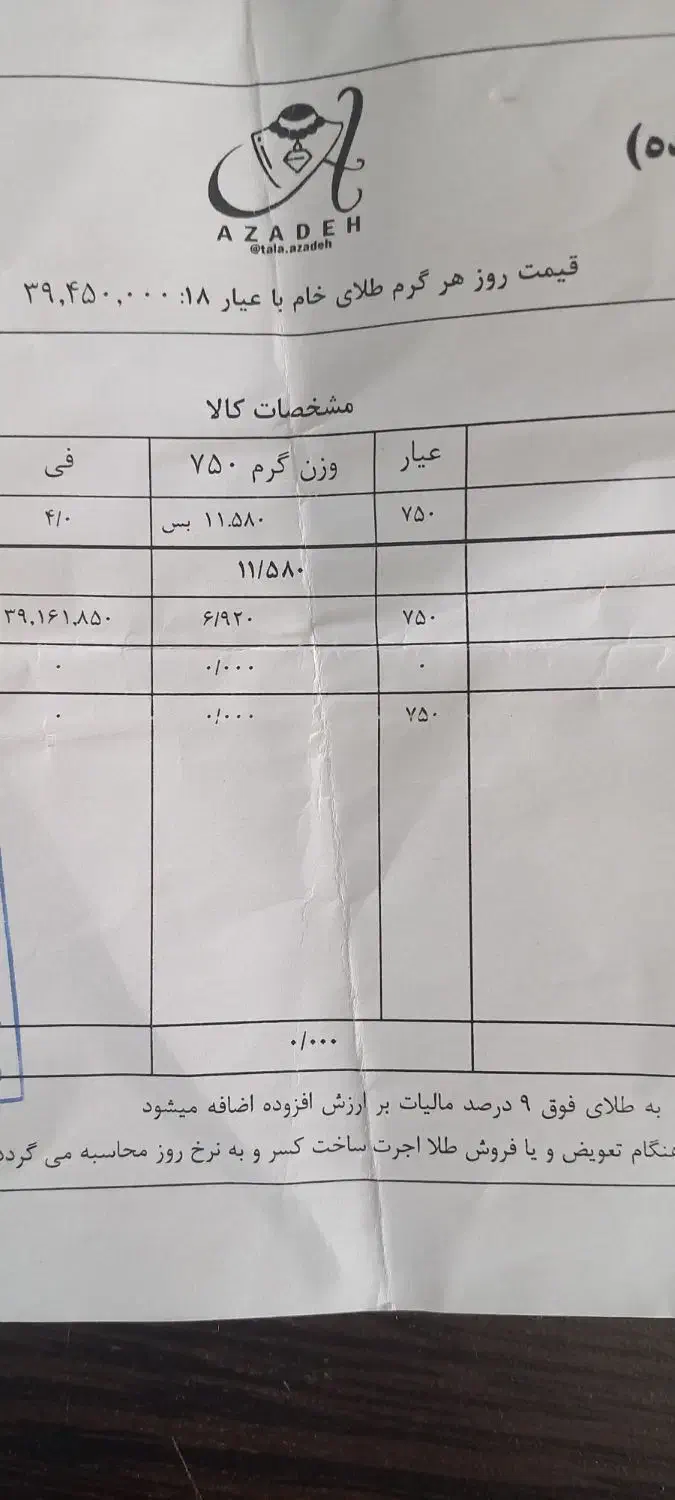 AZADEH
@tala.azadeh
قیمت روز هر گرم طلای خام با عیار ۱۸: ۳۹,۴۵۰,۰۰۰
مشخصات کالا
عیار وزن گرم ۷۵۰ فی
۷۵۰ ۱۱.۵۸۰ بس ۴/۰
۱۱/۵۸۰
۷۵۰ ۶/۹۲۰ ۳۹,۱۶۱,۸۵۰
۰ ۰/۰۰۰ ۰
۷۵۰ ۰/۰۰۰ ۰
۰/۰۰۰
به طلای فوق ۹ درصد مالیات بر ارزش افزوده اضافه میشود
هنگام تعویض و یا فروش طلا اجرت ساخت کسر و به نرخ روز محاسبه می گردد